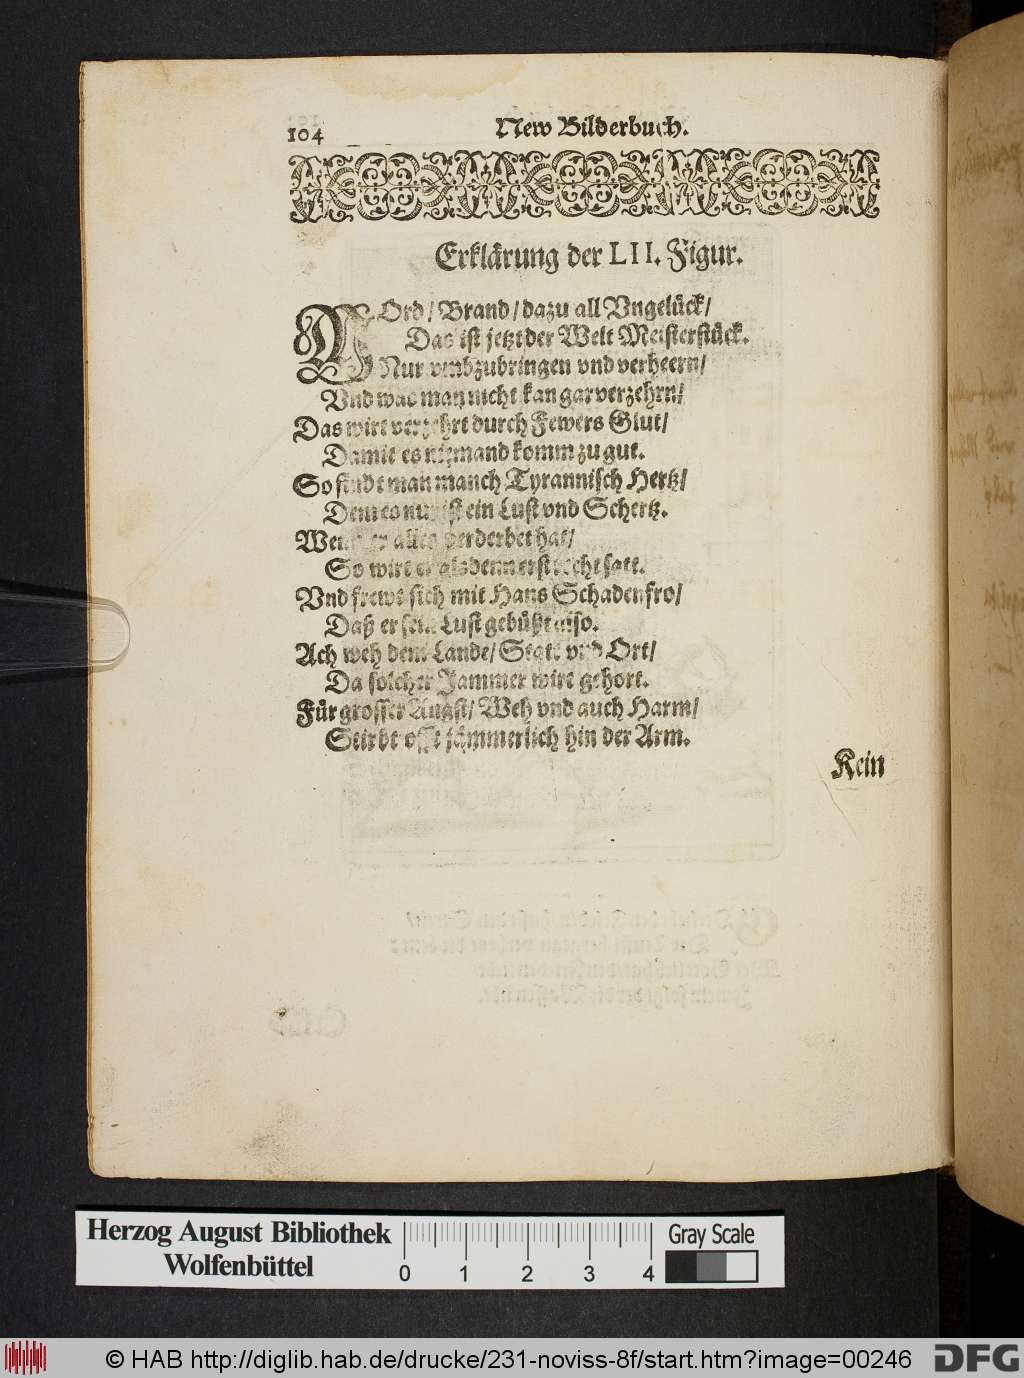 104
New Bilderbuch.
Erklärung der LII. Figur.
MOrd/ Brand/ dazu all Vngelück/
Das ist jetzt der Welt Meisterstück.
Nur vmbzubringen vnd verheern/
Vnd was man nicht kan gar verzehrn/
Das wirt verzehrt durch Fewers Glut/
Damit es niemand komm zu gut.
So findt man manch Tyrannisch Hertz/
Dem es nur ist ein Lust vnd Schertz.
Wenn er alles verderbet hat/
So wirt er alsdenn erst recht satt.
Vnd frewt sich mit Hans Schadenfro/
Daß er sein Lust gebüßt also.
Ach weh dem Lande/ Statt vnd Ort/
Da solcher Jammer wirt gehort.
Für grosser Angst/ Weh vnd auch Harm/
Stirbt offt jämmerlich hin der Arm.
Kein
Herzog August Bibliothek
Wolfenbüttel
0 1 2 3 4
Gray Scale
© HAB http://diglib.hab.de/drucke/231-noviss-8f/start.htm?image=00246
DFG